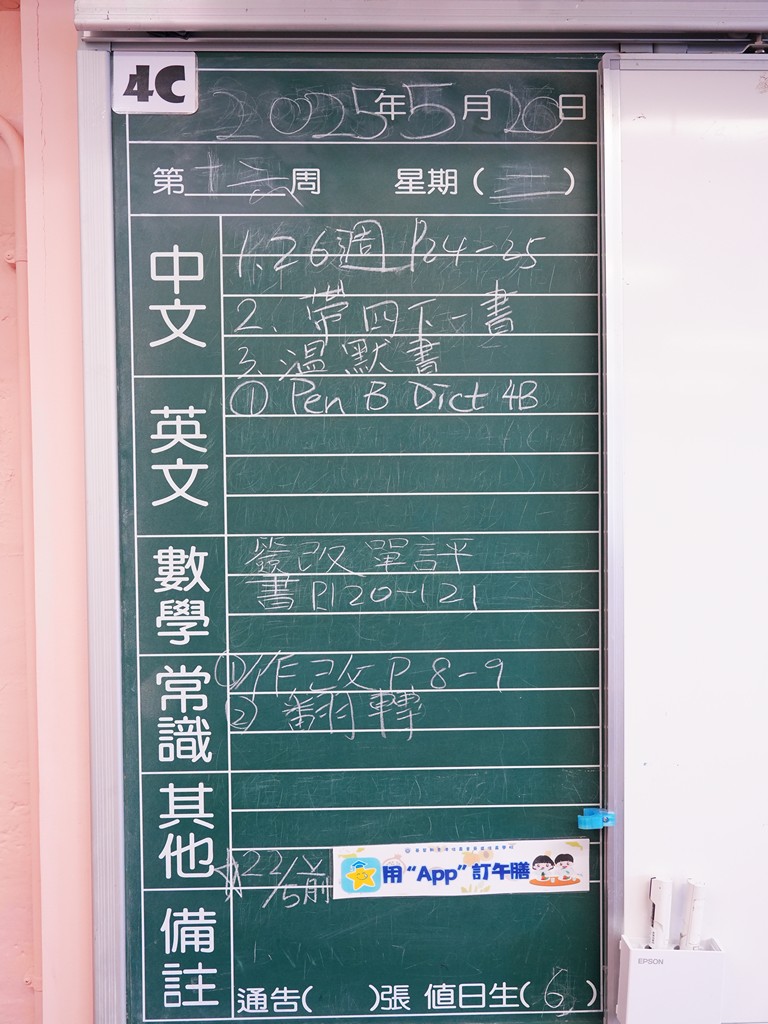 4C
2025年5月20日
第十六周 星期(二)
中文
1. 26週 P.24-25
2. 帶四下一書
3. 溫默書
英文
① Pen B Dict 4B
數學
簽改單評
書P.120-121
常識
①作改 P.8-9
② 翻轉
其他
☆22/5前
用“App”訂午膳
備註
通告( )張 值日生(6)
EPSON